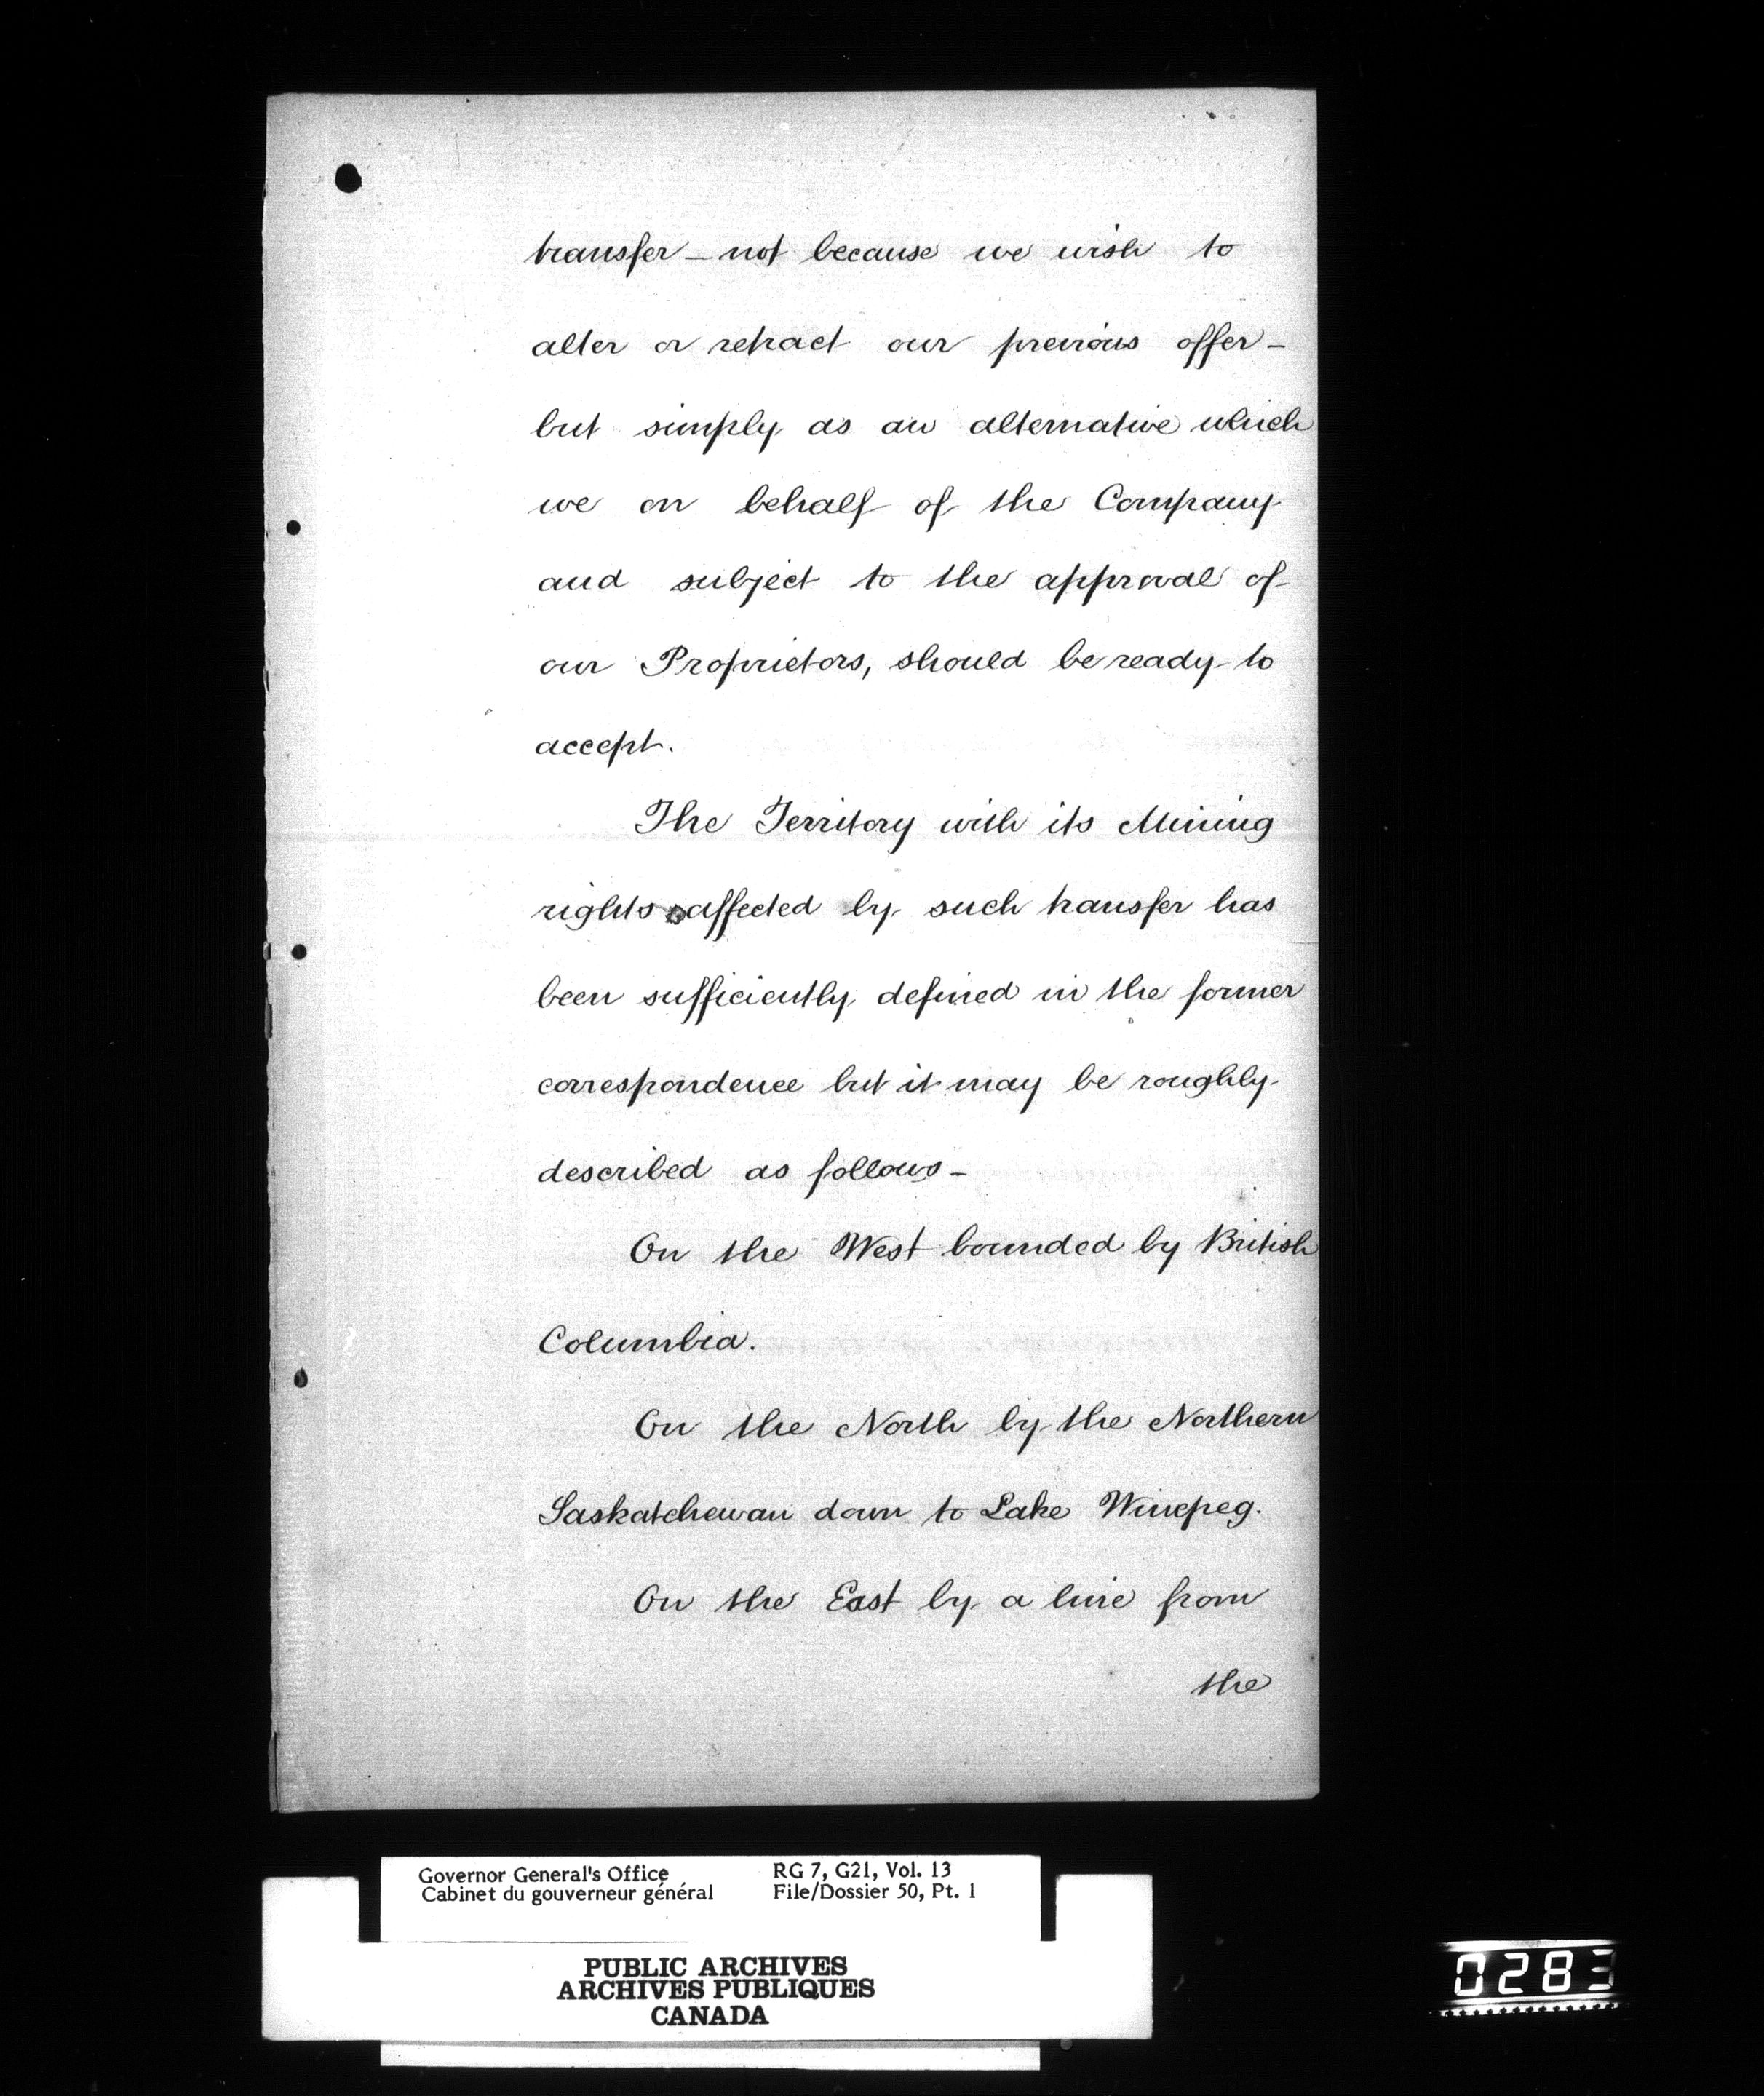 transfer – not because we wish to
alter or retract our previous offer –
but simply as an alternative which
we on behalf of the Company
and subject to the approval of
our Proprietors, should be ready to
accept.
The Territory with its Mining
rights affected by such transfer has
been sufficiently defined in the former
correspondence but it may be roughly
described as follows –
On the West bounded by British
Columbia.
On the North by the Northern
Saskatchewan down to Lake Winepeg.
On the East by a line from
the
Governor General's Office RG 7, G21, Vol. 13
Cabinet du gouverneur général File/Dossier 50, Pt. 1
PUBLIC ARCHIVES
ARCHIVES PUBLIQUES
CANADA
0283